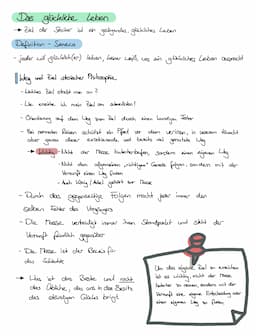 Das glückliche Leben
→ Ziel der Stoiker ist ein gelingendes, glückliches Leben
Definition - Seneca
- jeder will glücklich(er) leben, keiner weiß, was ein glückliches Leben ausmacht
Weg und Ziel stoischer Philosophie
- Welches Ziel strebt man an?
- Wie erreiche ich mein Ziel am schnellsten?
- Orientierung auf dem Weg zum Ziel durch einen kundigen Führer
- Bei normalen Reisen schützt ein Pfad vor dem verirren, in diesem Fall
aber genau dieser
→ Wichtig: - Nicht der Masse hinterherlaufen, sondern einen eigenen Weg
- Nicht dem allgemeinen "richtigen" Gerede folgen, sondern mit der
Vernunft einen Weg finden
- Auch König/Adel gehört zur Masse
- Durch das gegenseitige Folgen macht jeder immer den
selben Fehler des Vorgängers
- Die Masse verteidigt immer ihren Standpunkt und steht der
Vernunft feindlich gegenüber
- Die Masse ist der Beweis für
das Schlechte
→ Was ist das Beste und nicht
das Übliche, das uns in den Besitz
des ewigen Glücks bringt
Um das eigene Ziel zu erreichen
ist es wichtig, nicht der Masse
hinterher zu rennen, sondern mit der
Vernunft eine eigene Entscheidung oder
einen eigenen Weg zu finden.